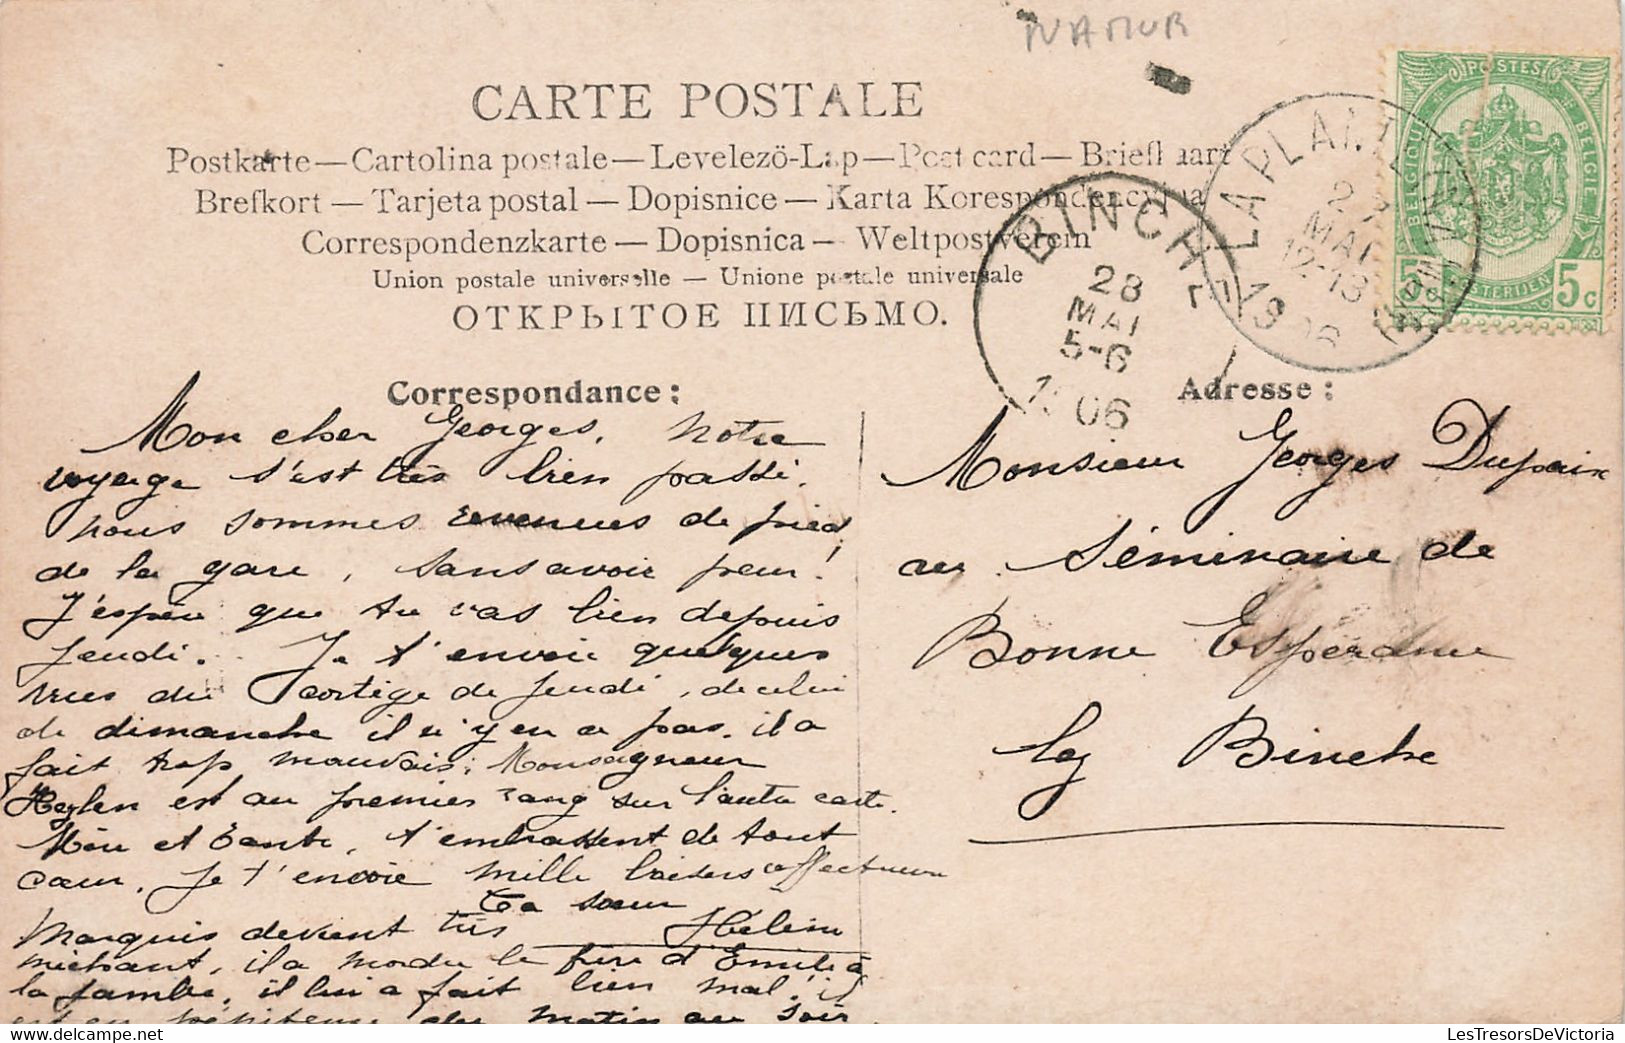 NAMUR
CARTE POSTALE
Postkarte — Cartolina postale — Levelezö-Lap — Post card — Briefkaart
Brefkort — Tarjeta postal — Dopisnice — Karta Korespondencyjna
Correspondenzkarte — Dopisnica — Weltpostverein
Union postale universelle — Unione postale universale
ОТКРЫТОЕ ПИСЬМО.
POSTES
BELGIQUE
BELGIE
5
5c
LA PLANTE
27
MAI
12-13
1906
BINCHE
28
MAI
5-6
1906
Correspondance :
Mon cher Georges. Notre
voyage s'est très bien passé.
nous sommes revenues de pied
de la gare, sans avoir peur!
J'espère que tu vas bien depuis
jeudi. Je t'envoie quelques
vues du Cortège de jeudi, de celui
de dimanche il n'y en a pas. il a
fait trop mauvais; Monseigneur
Heylen est au premier rang sur l'autre carte.
Mère et Tante, t'embrassent de tout
cœur. Je t'envoie mille baisers affectueux
Ta sœur
Hélène
Marquis devient très
méchant, il a mordu le frère d'Emile à
la jambe. il lui a fait bien mal! il
est en pénitence du matin au soir.
Adresse :
Monsieur Georges Dupaix
au Séminaire de
Bonne Espérance
lez Binche
LesTresorsDeVictoria.com